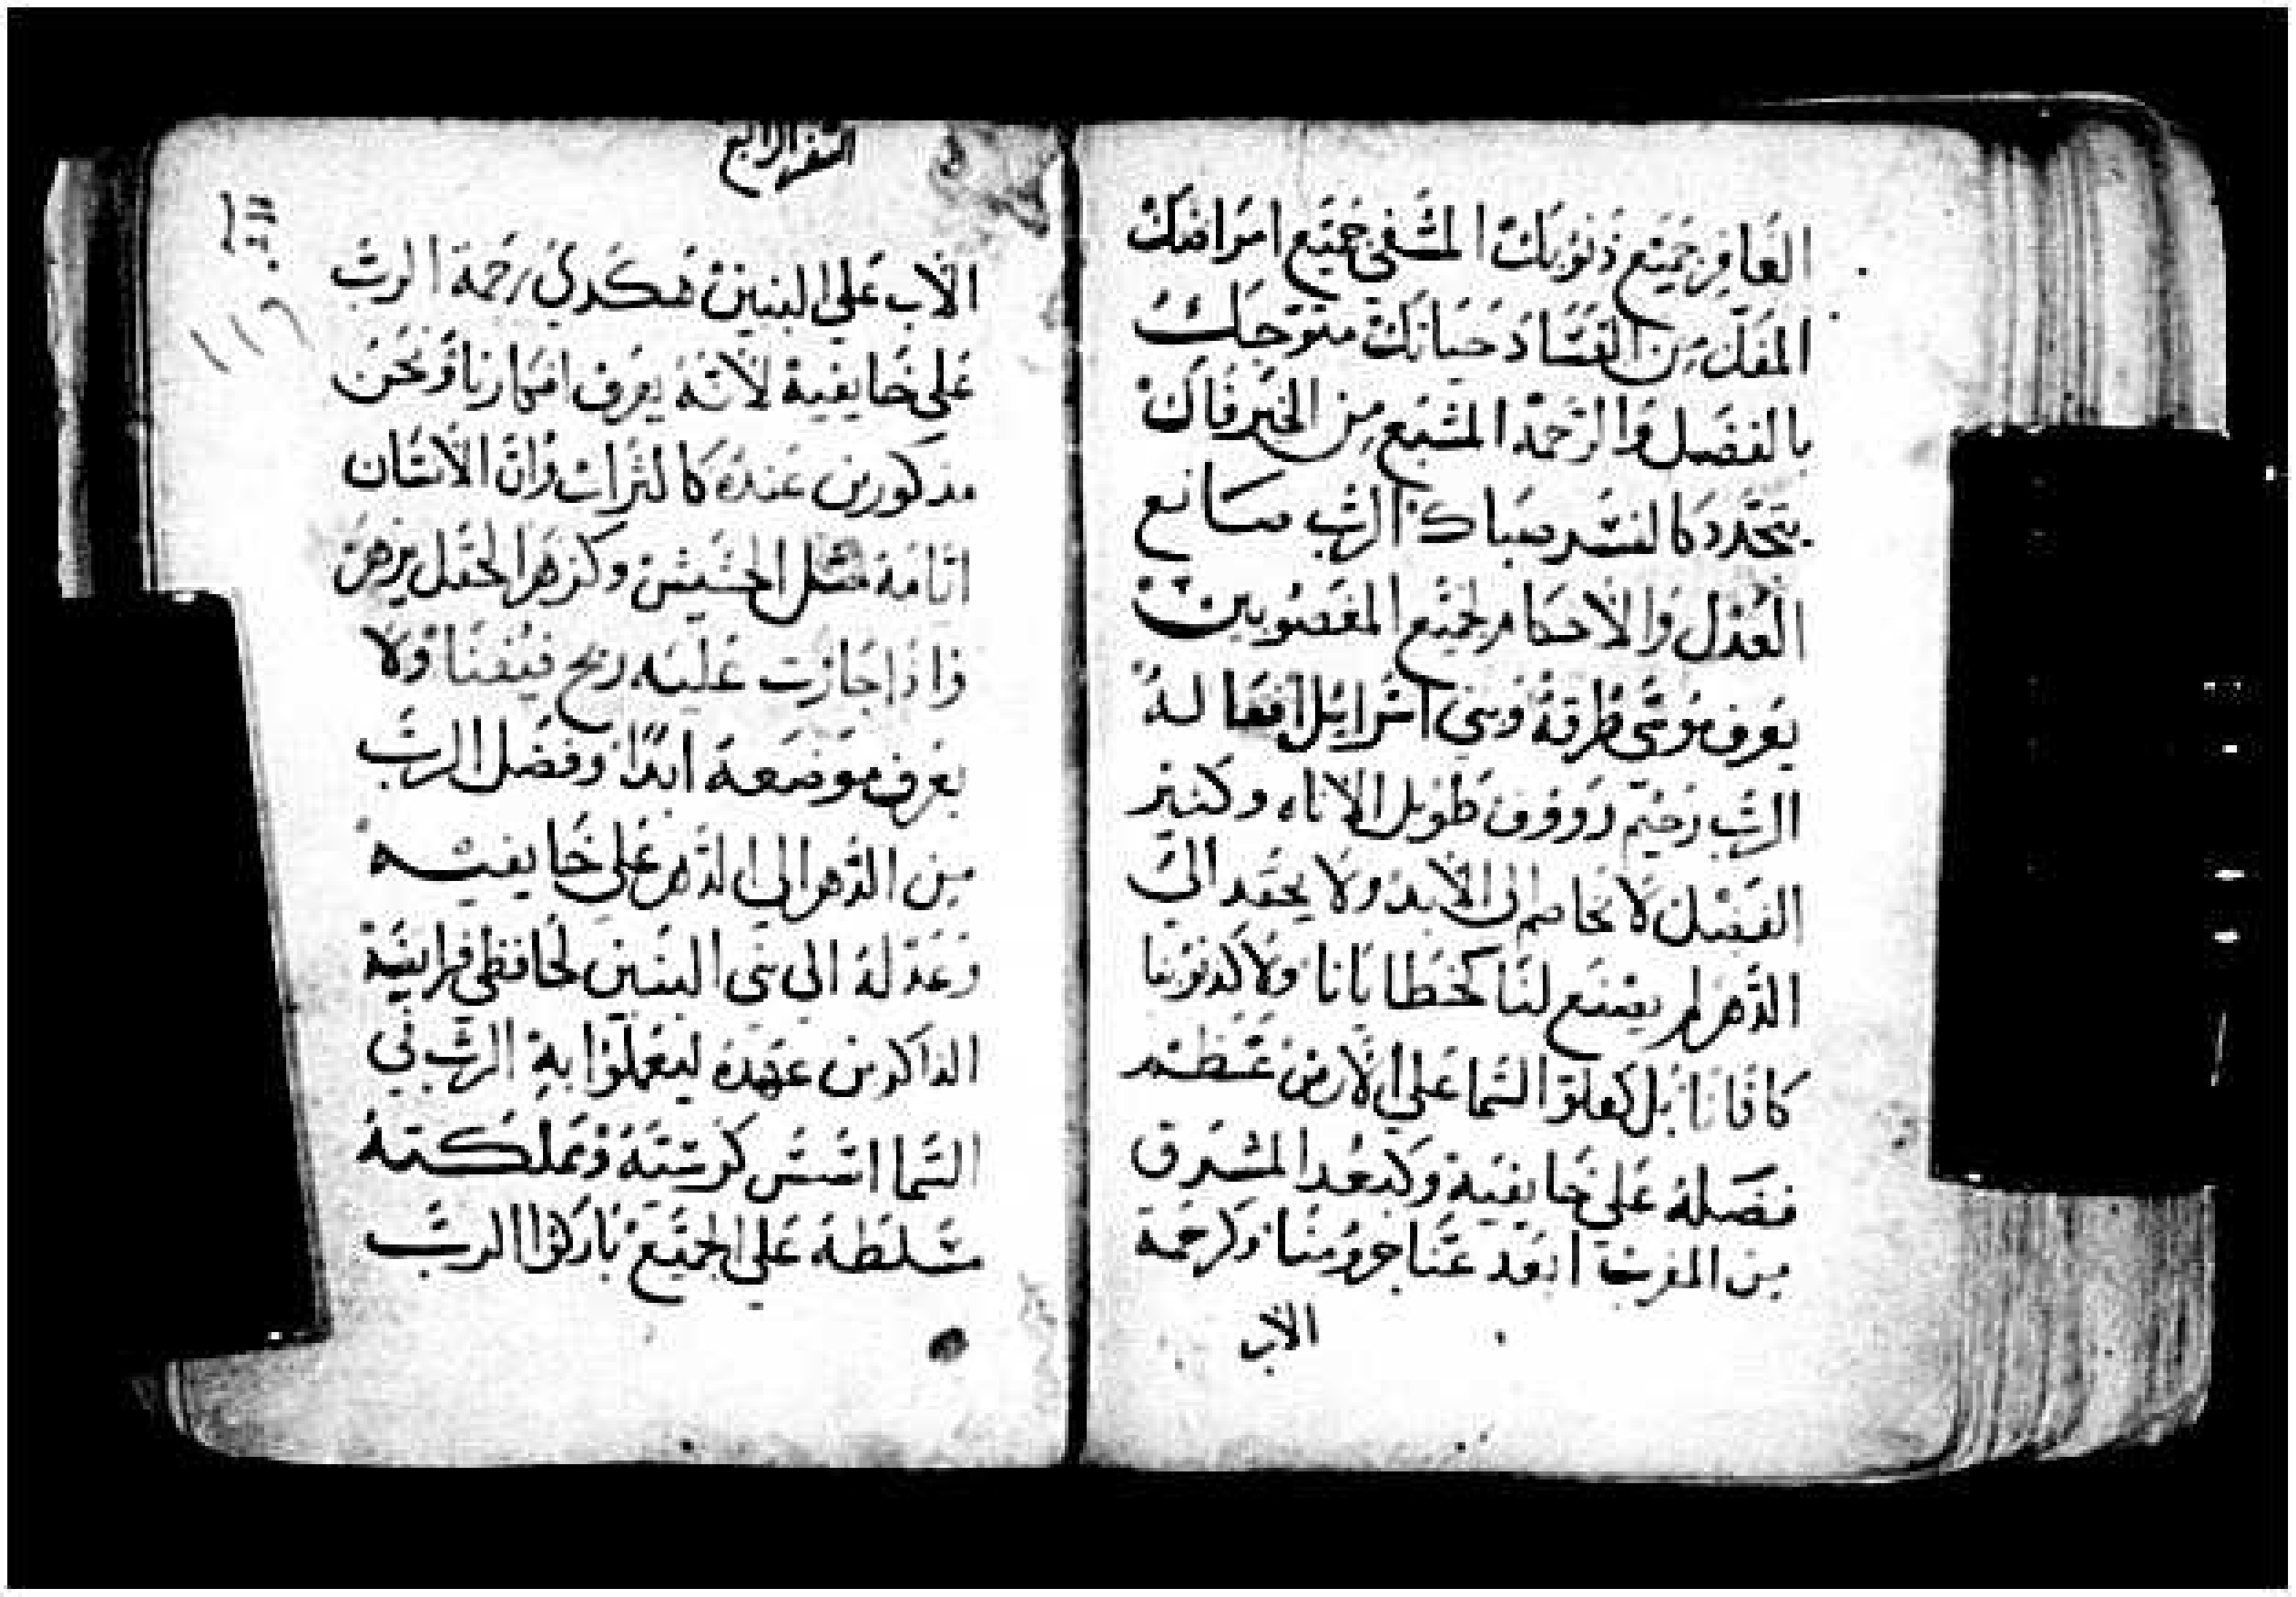 الغافر جميع ذنوبك المشفي جميع امراضك
المفك من الفساد حياتك متوجك
بالفضل والرحمة المشبع من الخير فاك
يتجدد كالنسر صباك الرب صانع
العدل والاحكام لجميع المغصوبين
يعرف موسي طرقة وبني اسراييل افعاله
الرب رحيم رووف طويل الاناه وكثير
الفضل لا يخاصم الى الابد ولا يحقد الى
الدهر لم يصنع لنا كخطايانا ولا كذنوبنا
كافانا بل كعلو السما على الارض عظم
فضله علي خايفية وكبعد المشرق
من المغرب ابعد عنا جرومنا وكرحمة
الاب
السفر الرابع
الاب علي البنين هكدي رحمة الرب
علي خايفية لانه يعرف اضمارنا ونحن
مذكورين عنده كالتراب وان الانسان
ايامه مثل الحشيش وكزهر الحقل يزهر
واذا جازت عليه ريح فيفنا ولا
يعرف موضعه ابدا وفضل الرب
من الدهر الي الدهر علي خايفيه
وعدله الي بني البنين لحافظي فرايضة
الذاكرين عهده ليعملوا به الرب في
السما اسس كرسيه ومملكته
متسلطه علي الجميع باركوا الرب